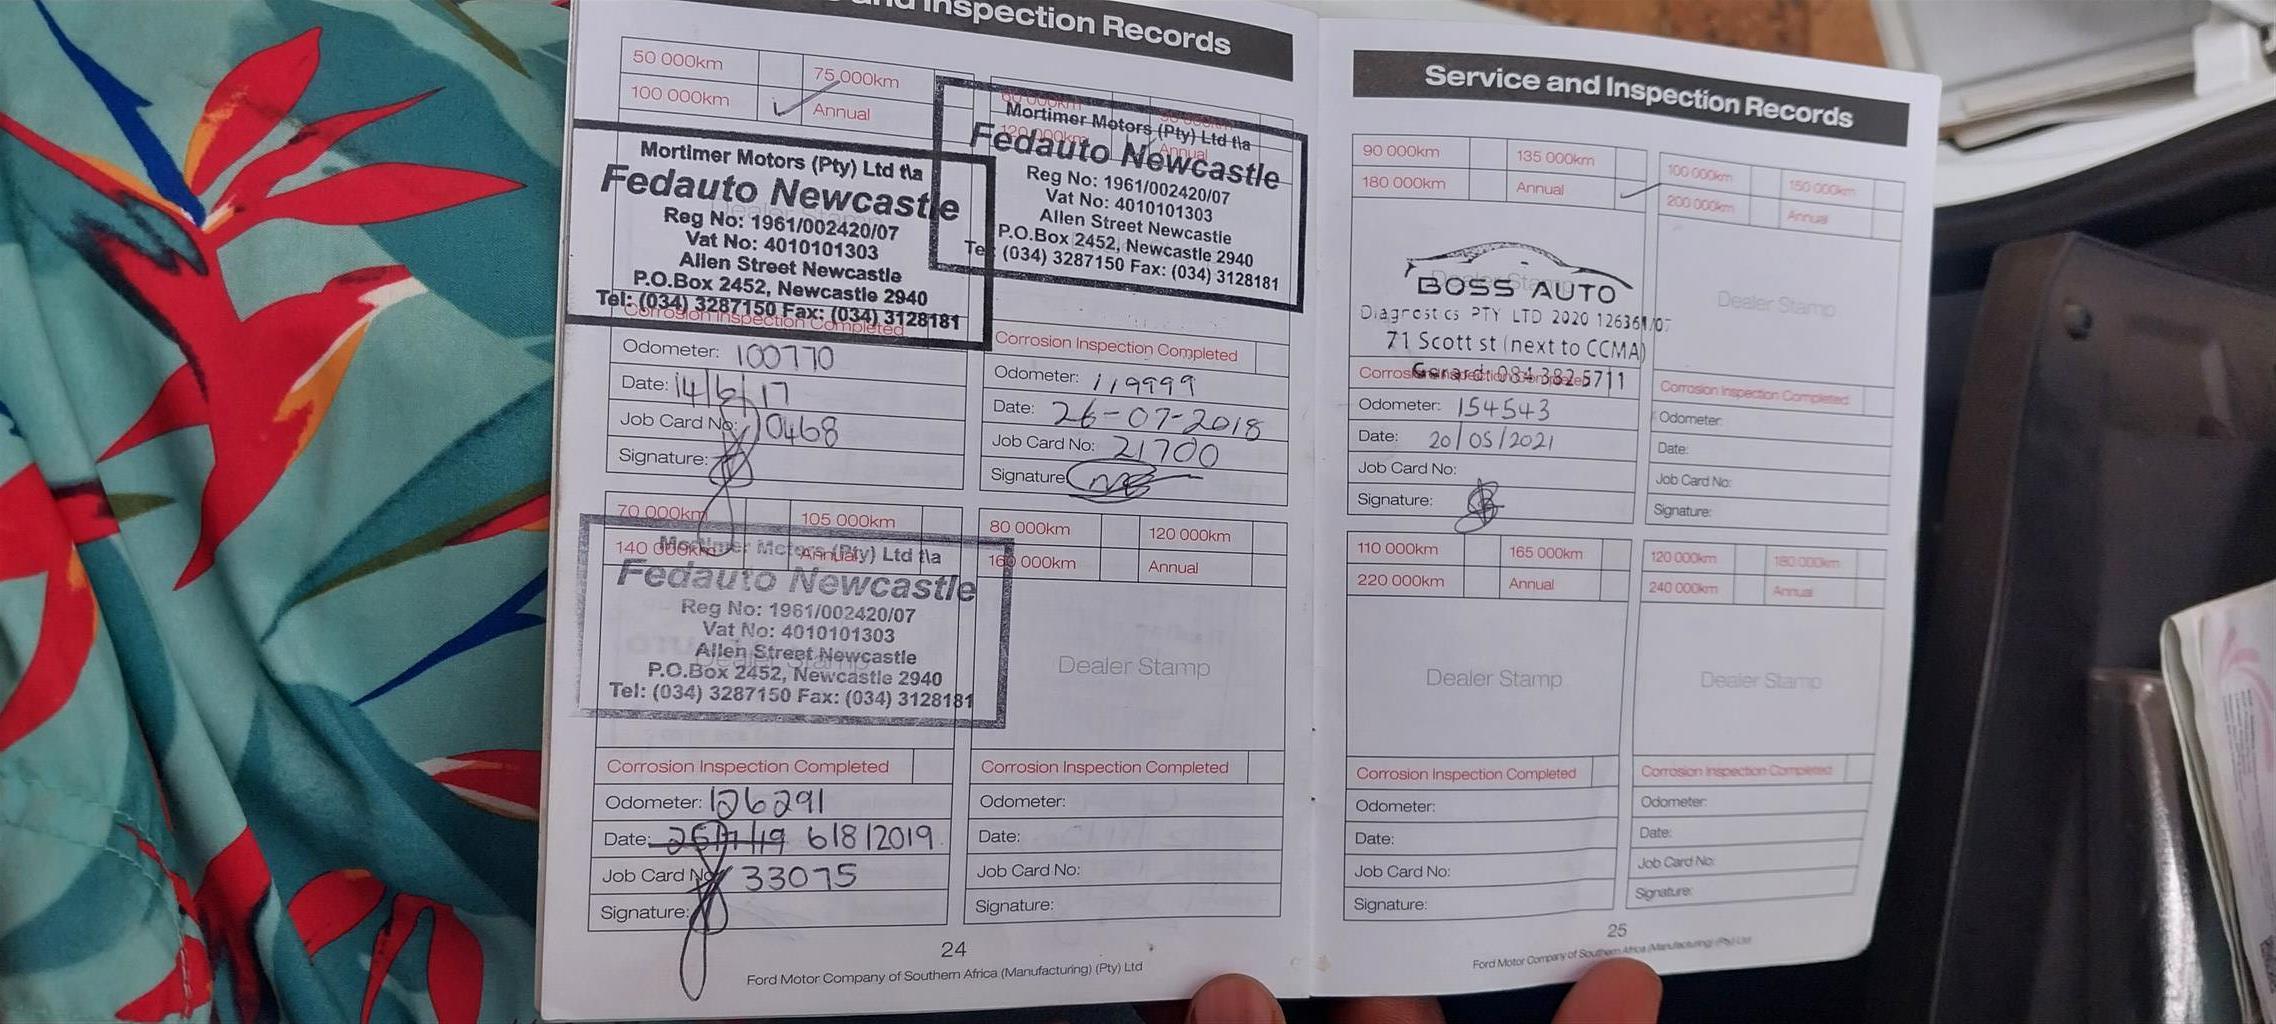 and Inspection Records
50 000km
75 000km
100 000km
Annual
Mortimer Motors (Pty) Ltd t\a
Fedauto Newcastle
Reg No: 1961/002420/07
Vat No: 4010101303
Allen Street Newcastle
P.O.Box 2452, Newcastle 2940
Tel: (034) 3287150 Fax: (034) 3128181
Corrosion Inspection Completed
Odometer: 100770
Date: 14/6/17
Job Card No: 10468
Signature:
60 000km
90 000km
120 000km
Annual
Mortimer Motors (Pty) Ltd t\a
Fedauto Newcastle
Reg No: 1961/002420/07
Vat No: 4010101303
Allen Street Newcastle
P.O.Box 2452, Newcastle 2940
Tel: (034) 3287150 Fax: (034) 3128181
Corrosion Inspection Completed
Odometer: 119999
Date: 26-07-2018
Job Card No: 21700
Signature
70 000km
105 000km
140 000km
Annual
Mortimer Motors (Pty) Ltd t\a
Fedauto Newcastle
Reg No: 1961/002420/07
Vat No: 4010101303
Allen Street Newcastle
P.O.Box 2452, Newcastle 2940
Tel: (034) 3287150 Fax: (034) 3128181
Corrosion Inspection Completed
Odometer: 126291
Date: 6/8/2019
Job Card No 33075
Signature:
80 000km
120 000km
160 000km
Annual
Dealer Stamp
Corrosion Inspection Completed
Odometer:
Date:
Job Card No:
Signature:
24
Ford Motor Company of Southern Africa (Manufacturing) (Pty) Ltd
Service and Inspection Records
90 000km
135 000km
180 000km
Annual
Dealer Stamp
BOSS AUTO
Diagnostics PTY LTD 2020 126361/07
71 Scott st (next to CCMA)
Gerard: 084 382 5711
Corrosion Inspection Completed
Odometer: 154543
Date: 20/05/2021
Job Card No:
Signature:
100 000km
150 000km
200 000km
Annual
Dealer Stamp
Corrosion Inspection Completed
Odometer:
Date:
Job Card No:
Signature:
110 000km
165 000km
220 000km
Annual
Dealer Stamp
Corrosion Inspection Completed
Odometer:
Date:
Job Card No:
Signature:
120 000km
180 000km
240 000km
Annual
Dealer Stamp
Corrosion Inspection Completed
Odometer:
Date:
Job Card No:
Signature:
25
Ford Motor Company of Southern Africa (Manufacturing) (Pty) Ltd